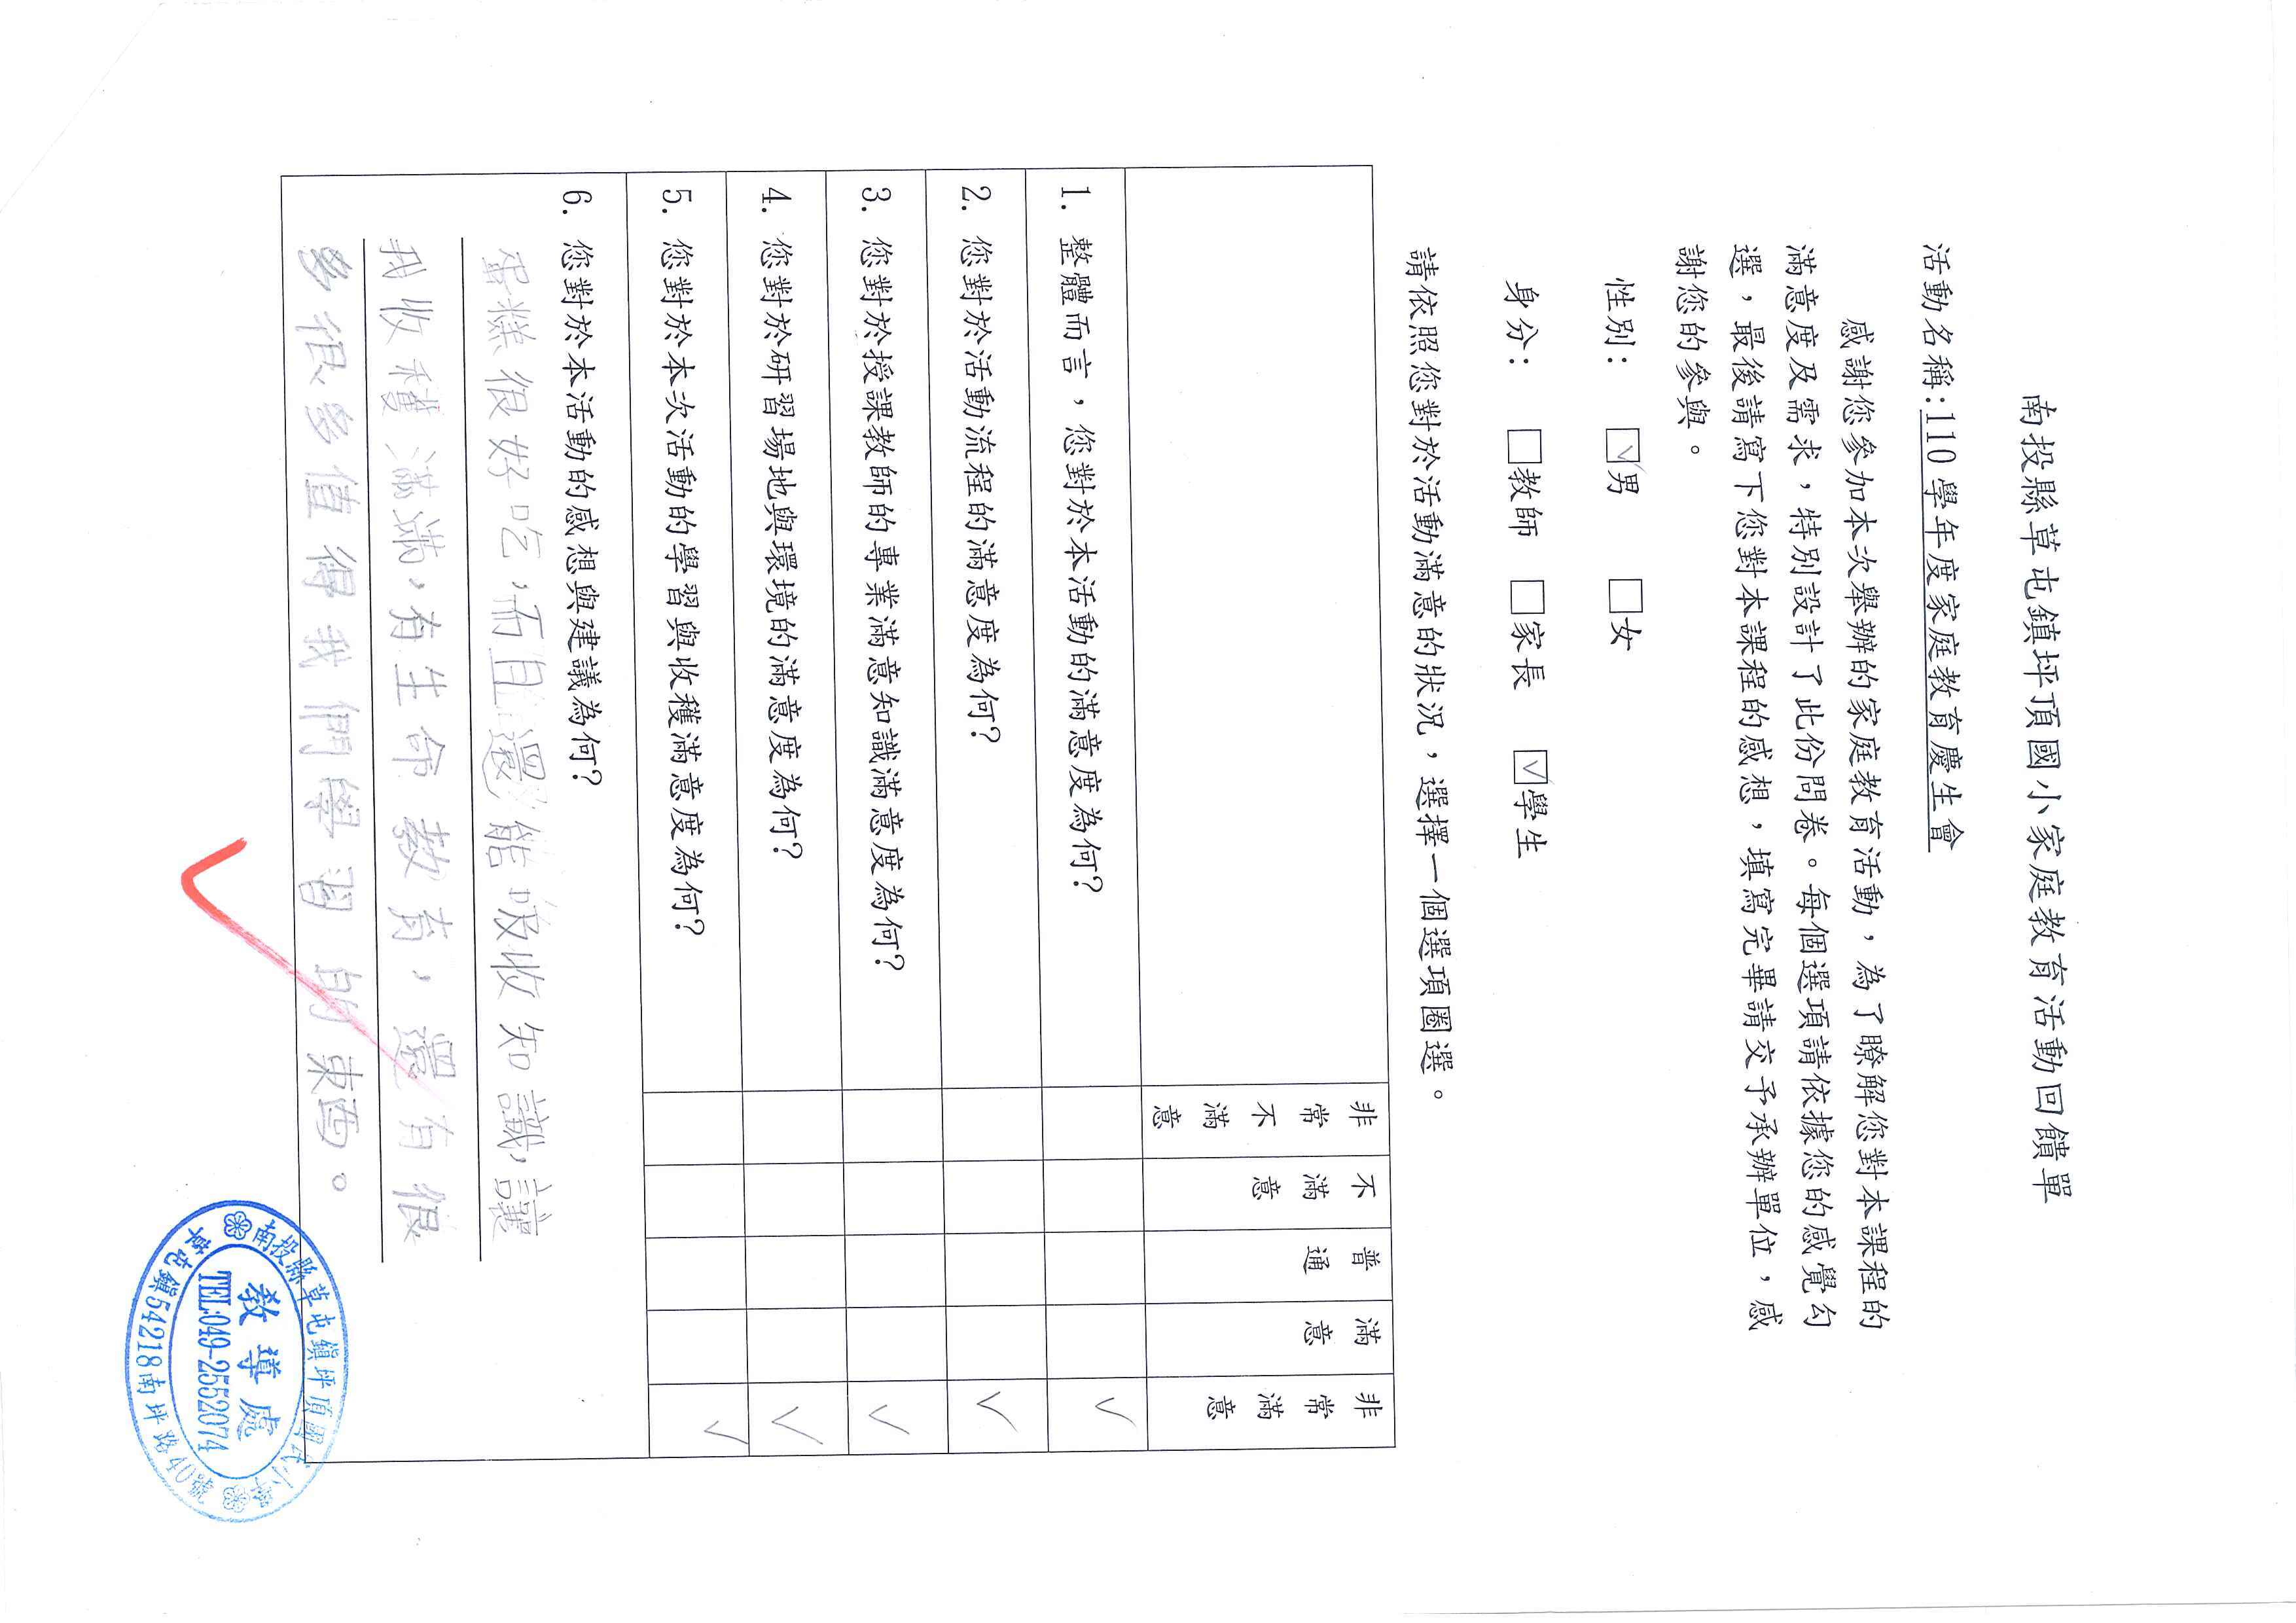 南投縣草屯鎮坪頂國小家庭教育活動回饋單
活動名稱:110 學年度家庭教育慶生會
感謝您參加本次舉辦的家庭教育活動,為了瞭解您對本課程的
滿意度及需求,特別設計了此份問卷。每個選項請依據您的感覺勾
選,最後請寫下您對本課程的感想,填寫完畢請交予承辦單位,感
謝您的參與。
性別: ☑男 □女
身分: □教師 □家長 ☑學生
請依照您對於活動滿意的狀況,選擇一個選項圈選。
非常不滿意 不滿意 普通 滿意 非常滿意
1. 整體而言,您對於本活動的滿意度為何? ✓
2. 您對於活動流程的滿意度為何? ✓
3. 您對於授課教師的專業滿意知識滿意度為何? ✓
4. 您對於研習場地與環境的滿意度為何? ✓
5. 您對於本次活動的學習與收穫滿意度為何? ✓
6. 您對於本活動的感想與建議為何?
蛋糕很好吃,而且還能吸收知識,讓
我收穫滿滿,有生命教育,還有很
多很多值得我們學習的東西。
南投縣草屯鎮坪頂國民小學
教導處
TEL:049-2552074
草屯鎮54218南坪路40號